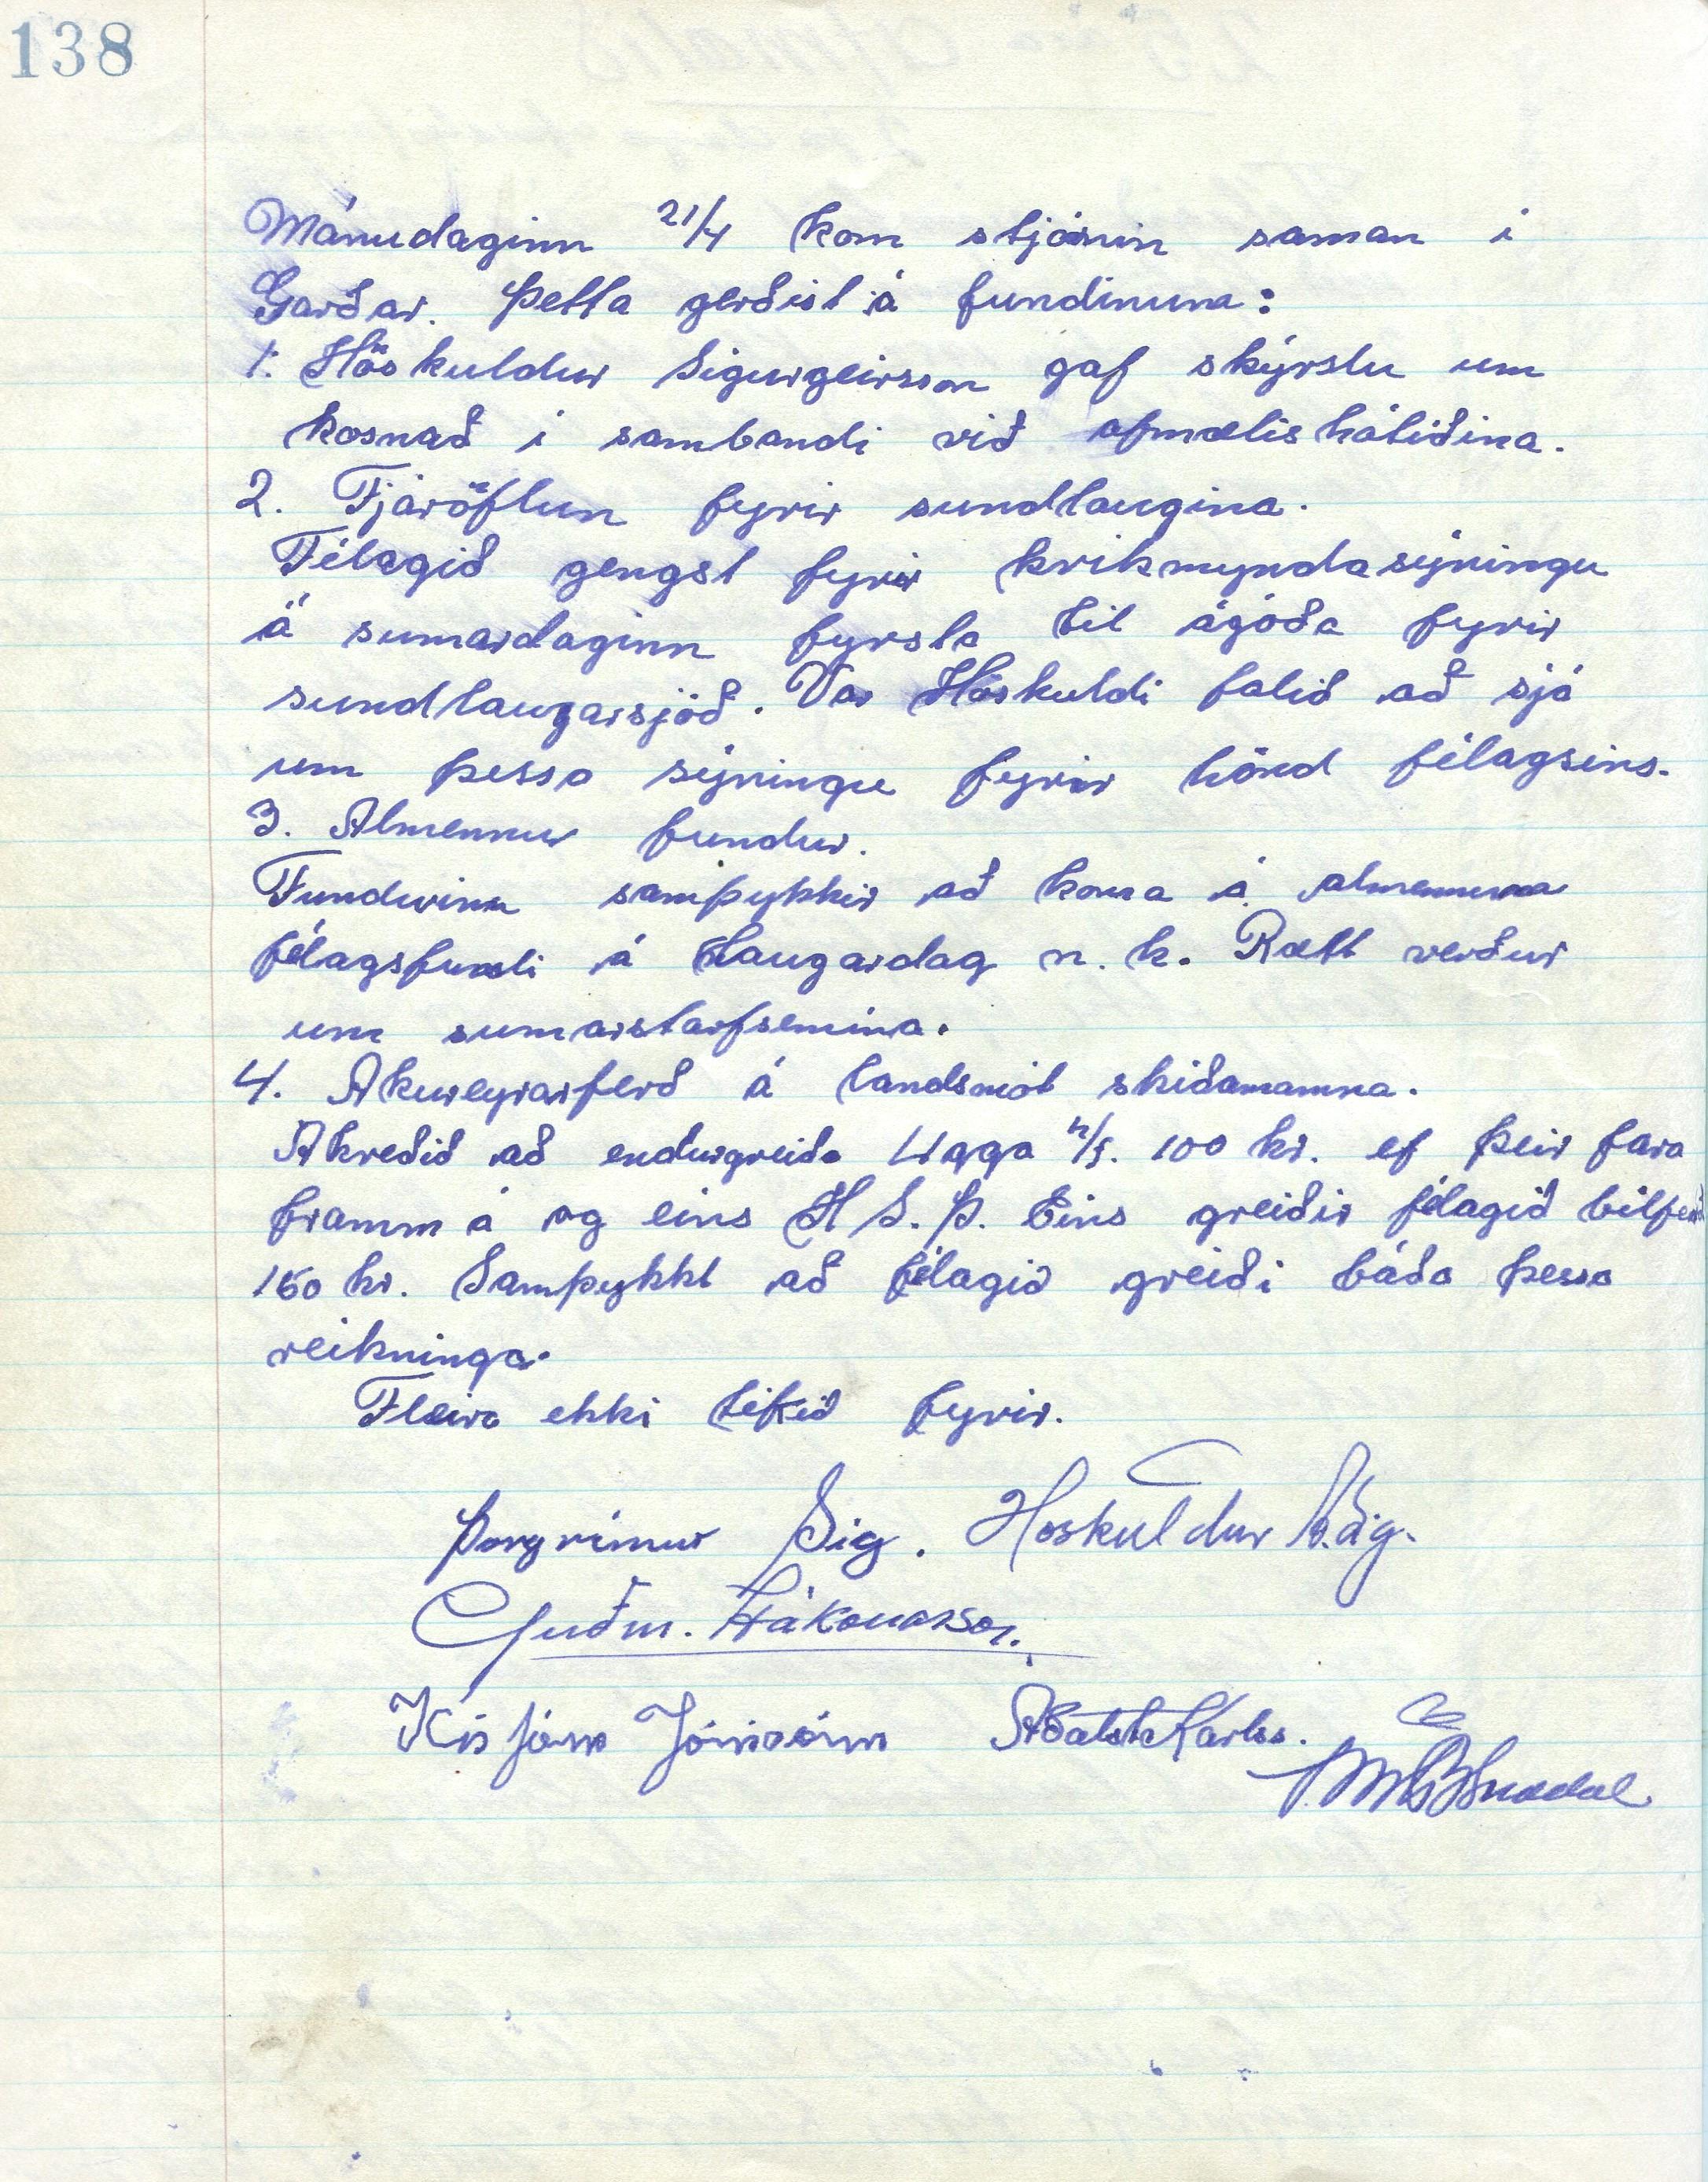 138
Mánudaginn 21/4 kom stjórnin saman í
Garðar. Þetta gerðist á fundinum:
1. Höskuldur Sigurgeirsson gaf skýrslu um
kosnað í sambandi við afmælishátíðina.
2. Fjáröflun fyrir sundlaugina.
Félagið gengst fyrir kvikmyndasýningu
á sumardaginn fyrsta til ágóða fyrir
sundlaugarsjóð. Var Höskuldi falið að sjá
um þessa sýningu fyrir hönd félagsins.
3. Almennur fundur.
Fundurinn samþykkir að koma á almennum
félagsfundi á laugardag n.k. Rætt verður
um sumarstarfsemina.
4. Akureyrarferð á landsmót skíðamanna.
Akveðið að endurgreiða 100 kr. ef þeir fara
framm á og eins H S. Þ. Eins greiðir félagið bílferð
150 kr. Samþykkt að félagið greiði báða þessa
reikninga.
Fleira ekki tekið fyrir.
Þorgrímur Sig. Höskuldur Sig.
Guðm. Hákonarson.
Kristjana Jónsdóttir Aðalst. Karlss.
Snædal